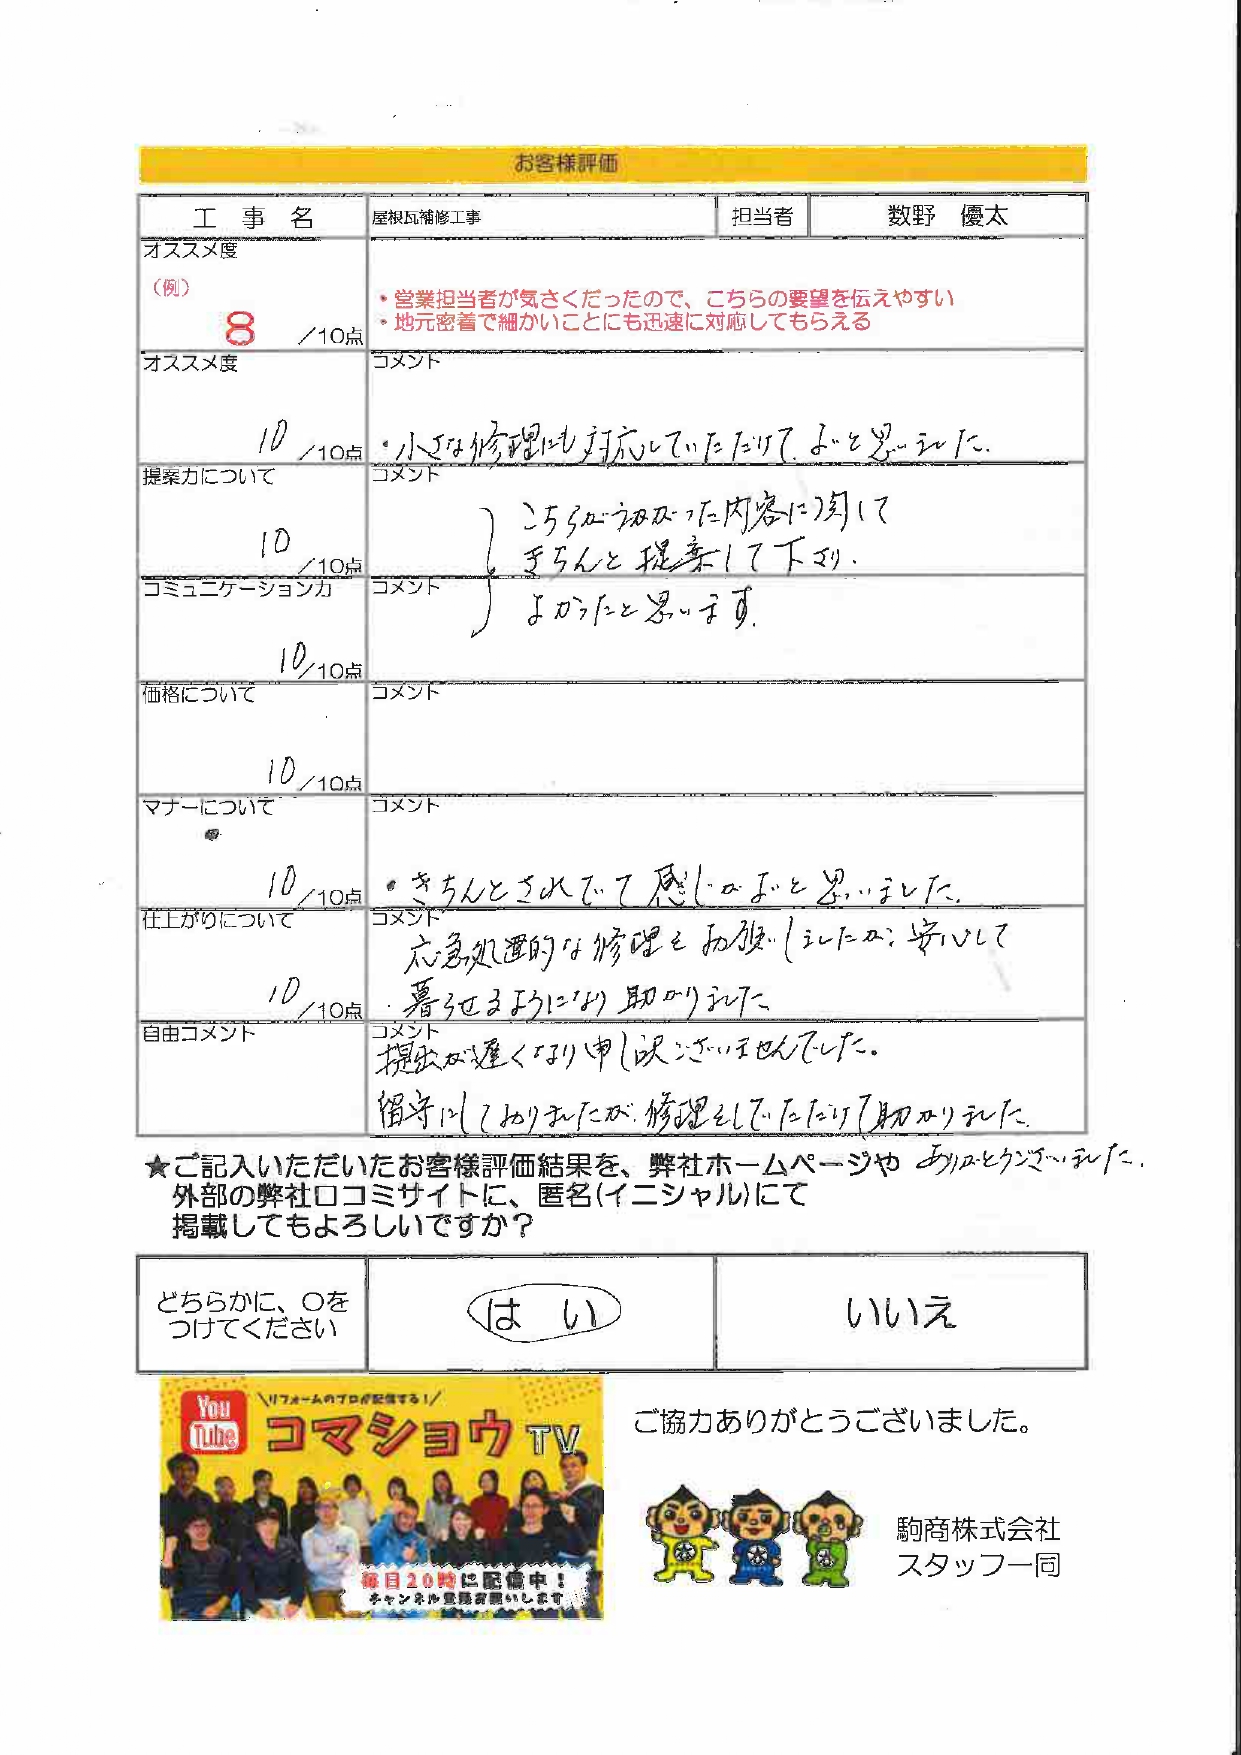 お客様評価
工 事 名 屋根瓦補修工事 担当者 数野 優太
オススメ度
（例）
8 ／10点
・営業担当者が気さくだったので、こちらの要望を伝えやすい
・地元密着で細かいことにも迅速に対応してもらえる
オススメ度 コメント
10 ／10点 ・小さな修理にも対応していただけて、よいと思いました。
提案力について コメント
こちらがうかがった内容に関して
10 ／10点 きちんと提案して下さり、
コミュニケーション力 コメント
よかったと思います。
10 ／10点
価格について コメント
10 ／10点
マナーについて コメント
10 ／10点 ・きちんとされていて感じがよいと思いました。
仕上がりについて コメント
応急処置的な修理をお願いしましたが、安心して
10 ／10点 ・暮らせるようになり助かりました
自由コメント コメント
提出が遅くなり申し訳ございませんでした。
留守にしておりましたが、修理をしていただけて助かりました
ありがとうございました。
★ご記入いただいたお客様評価結果を、弊社ホームページや
外部の弊社口コミサイトに、匿名(イニシャル)にて
掲載してもよろしいですか？
どちらかに、〇を
つけてください
はい いいえ
You
Tube
＼リフォームのプロが配信する！／
コマショウTV
毎日20時に配信中！
チャンネル登録お願いします
ご協力ありがとうございました。
駒商株式会社
スタッフ一同